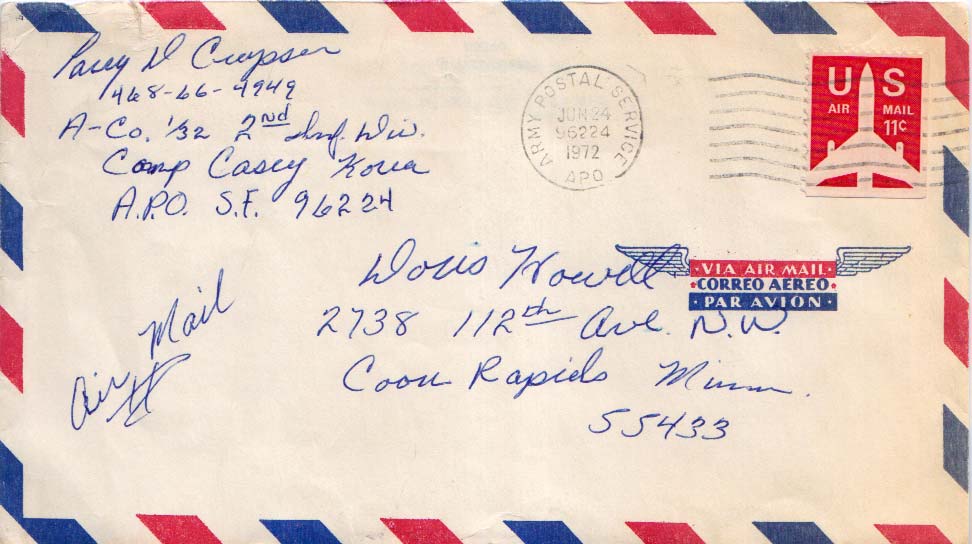 Larry D
468-66-4949
A-Co. 1/32 2nd Inf. Div.
Camp Casey Korea
A.P.O. S.F. 96224
ARMY POSTAL SERVICE
JUN 24
96224
1972
APO
US
AIR MAIL
11¢
Doris Howell
2738 112th Ave. N.W.
Coon Rapids Minn.
55433
VIA AIR MAIL
CORREO AEREO
PAR AVION
Air Mail